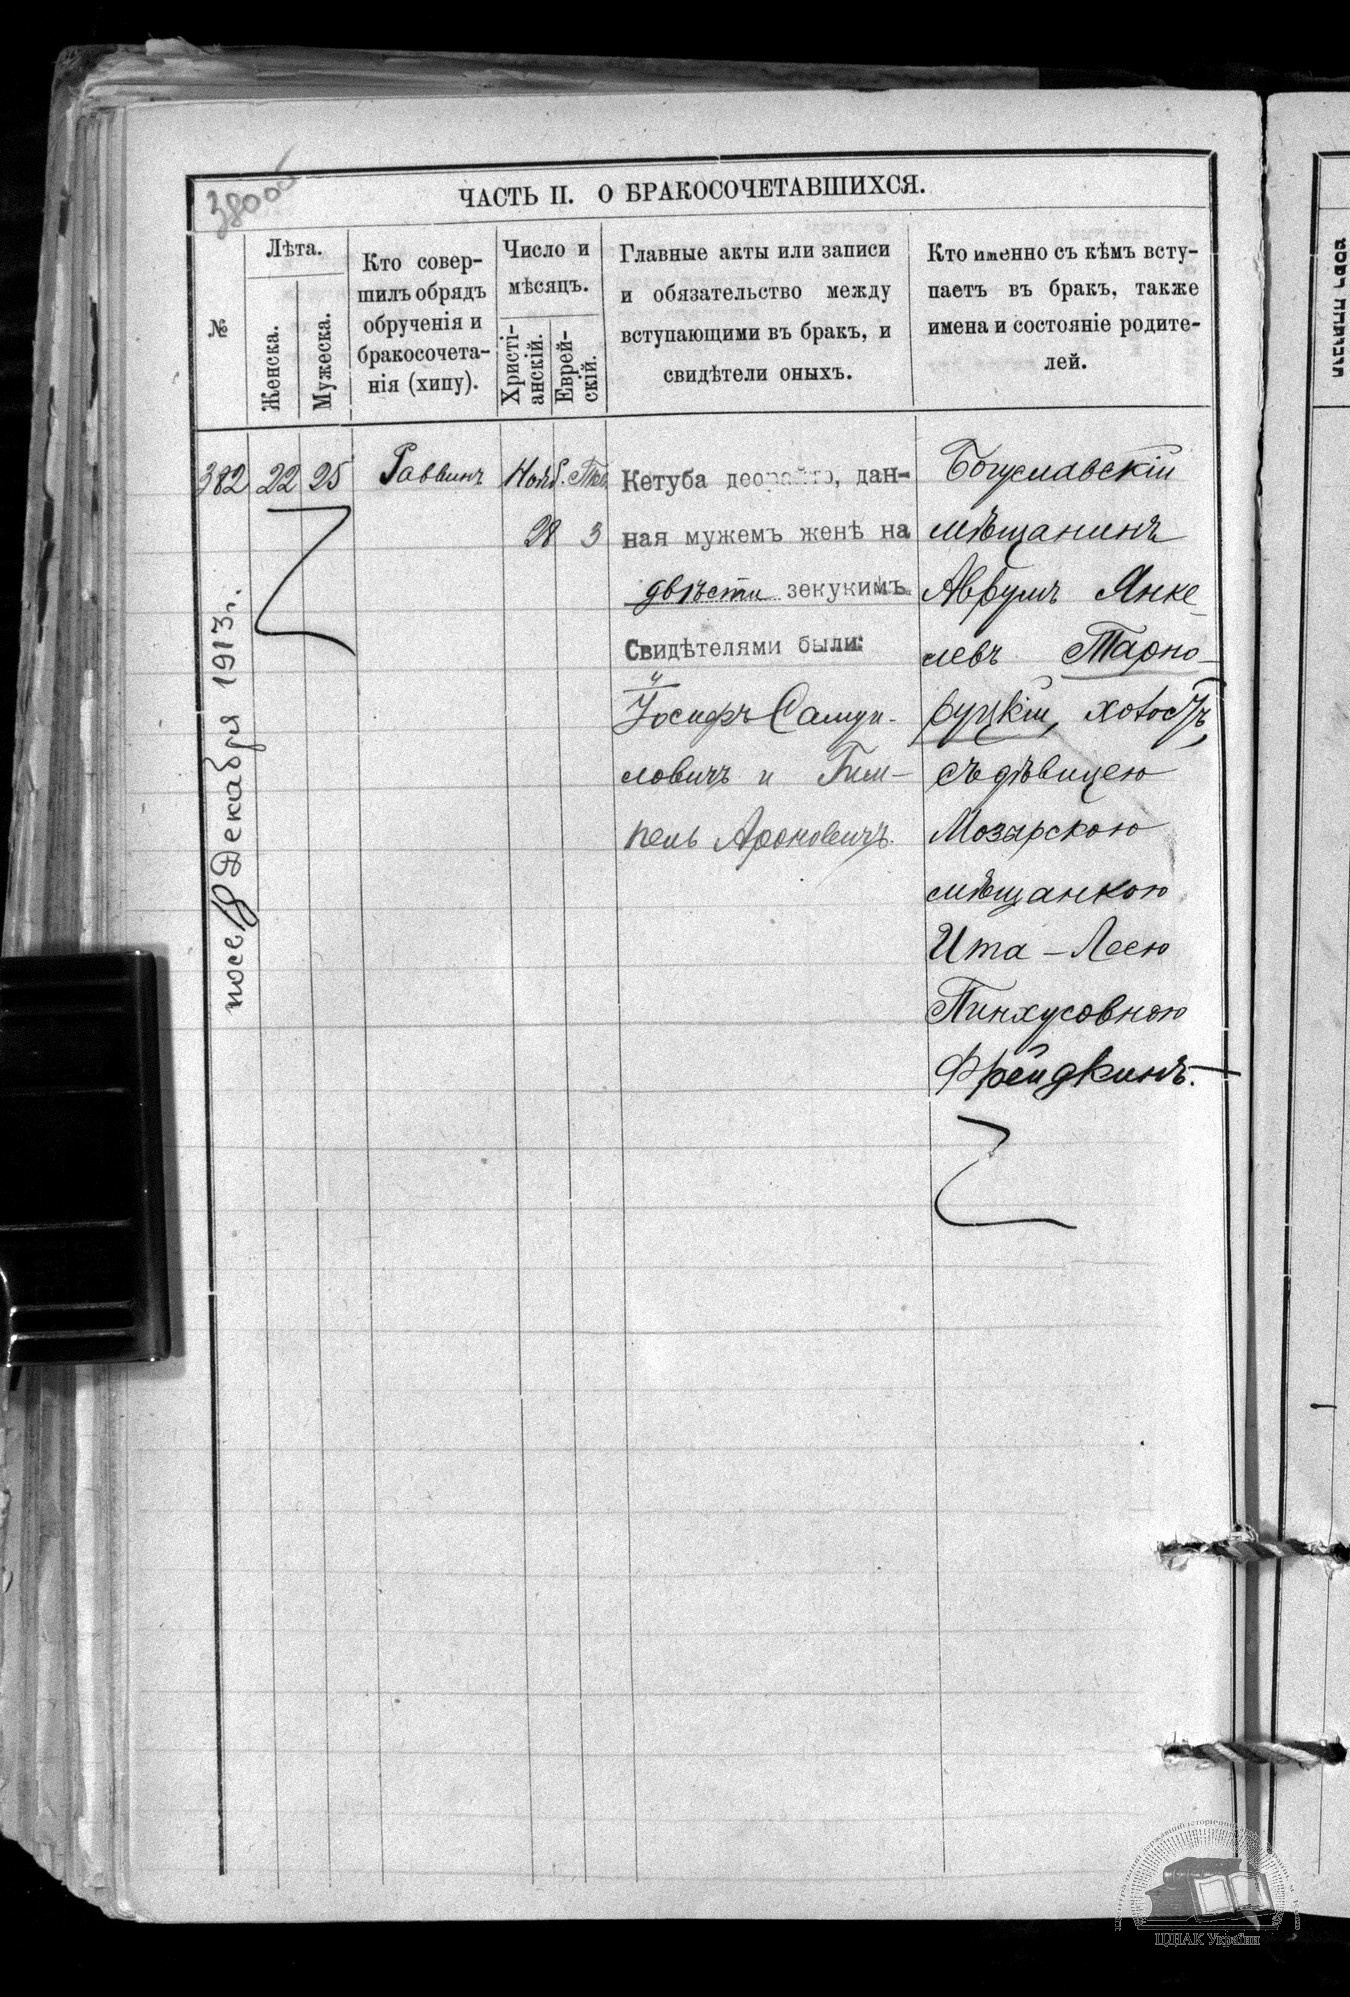 38006
ЧАСТЬ II. О БРАКОСОЧЕТАВШИХСЯ.
№
Лѣта.
Женска.
Мужеска.
Кто совер-
шилъ обрядъ
обрученія и
бракосочета-
нія (хипу).
Число и
мѣсяцъ.
Христі-
анскій.
Еврей-
скій.
Главные акты или записи
и обязательство между
вступающими въ бракъ, и
свидѣтели оныхъ.
Кто именно съ кѣмъ всту-
паетъ въ бракъ, также
имена и состояніе родите-
лей.
382
22
25
Раввинъ
Нояб.
28
3
Кетуба деорайто, дан-
ная мужемъ женѣ на
двѣсти зекукимъ.
Свидѣтелями были:
Іосифъ Самуи-
ловичъ и Гим-
пель Ароновичъ.
Богуславскій
мѣщанинъ
Аврумъ Янке-
левъ Тарно-
руцкій, холостъ,
съ дѣвицею
Мозырскою
мѣщанкою
Ита-Лесю
Пинхусовною
Фрейдкинъ.
Декабря 1913 г.
ЦДІАК України